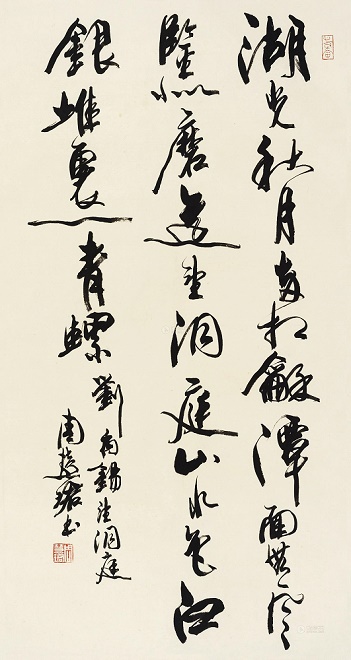 湖光秋月兩相龢潭面無風
鑒未磨遥望洞庭山水色白
銀堆裏一青螺劉禹錫望洞庭
周慧珺书